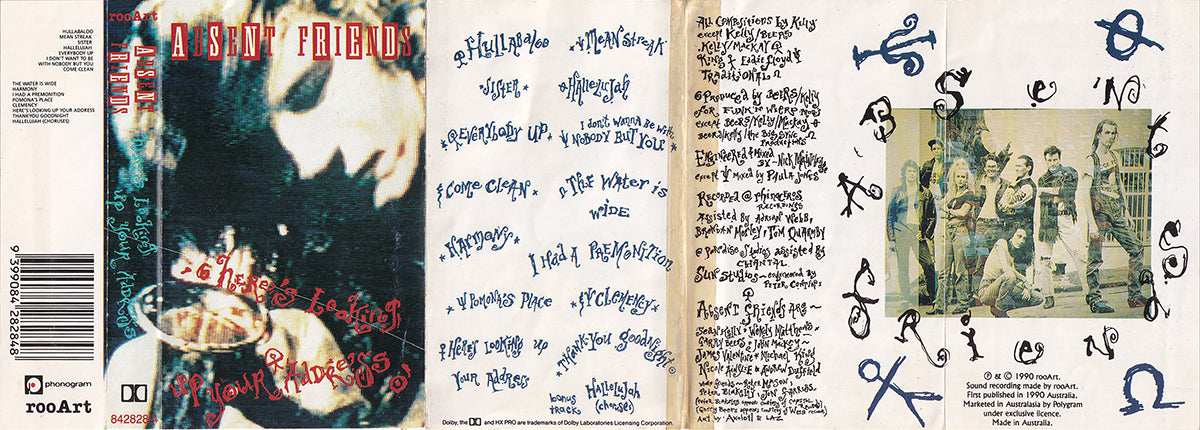 HULLABALOO
MEAN STREAK
SISTER
HALLELUJAH
EVERYBODY UP
I DON'T WANT TO BE
WITH NOBODY BUT YOU
COME CLEAN
THE WATER IS WIDE
HARMONY
I HAD A PREMONITION
POMONA'S PLACE
CLEMENCY
HERE'S LOOKING UP YOUR ADDRESS
THANKYOU GOODNIGHT
HALLELUJAH (CHORUSES)
9 399084 282848
phonogram
rooArt
rooArt
ABSENT
FRIENDS
Here's Looking
up your Address
842828-4
ABSENT FRIENDS
Here's Looking
up your Address
Hullabaloo
Mean Streak
Sister
Hallelujah
Everybody Up
I don't wanna Be with
Nobody But You
Come Clean
The Water is
Wide
Harmony
I Had A Premonition
Pomona's Place
Clemency
Here's Looking up
Your Address
Thank-you goodnight
bonus
track
Hallelujah
(choruses)
Dolby, the DD and HX PRO are trademarks of Dolby Laboratories Licensing Corporation.
All Compositions by Kelly
except Kelly/Beers
Kelly/Mackay
King & Eddie Floyd
Traditional
Produced by Beers/Kelly
for Funk'n Wiers Prods
except Beers/Kelly/Mackay &
Beers/Kelly/the Big Sync
Productions
Engineered & Mixed
By ~ Nick
except Mixed by Paula Jones
Recorded @ Rhinoceros
Recordings
Assisted by Adrian Webb,
Brendan Morley & Tom Quarmby
@ Paradise Studios assisted by
Chantal
Sun Studios ~ engineered by
Peter
Absent Friends Are ~
Sean Kelly ~ Wendy Matthews ~
Garry Beers ~ John Mackey ~
James Valentine ~ Michael King
Nicole Ainslie & Andrew Duffield
Peter Blakeley
Art by ~ Axolotl & LAZ
ABSENT
FRIENDS
Ⓟ & © 1990 rooArt.
Sound recording made by rooArt.
First published in 1990 Australia.
Marketed in Australasia by Polygram
under exclusive licence.
Made in Australia.